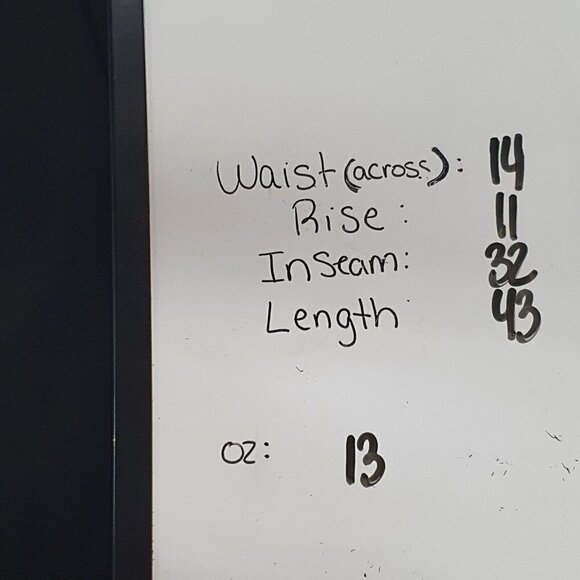 Waist (across): 14
Rise: 11
Inseam: 32
Length 43
oz: 13